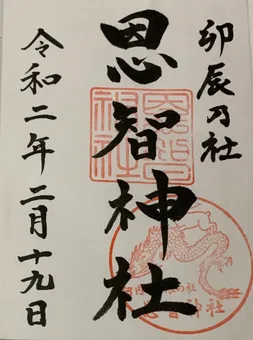 卯辰乃社
恩智神社
令和二年二月十九日
恩智神社